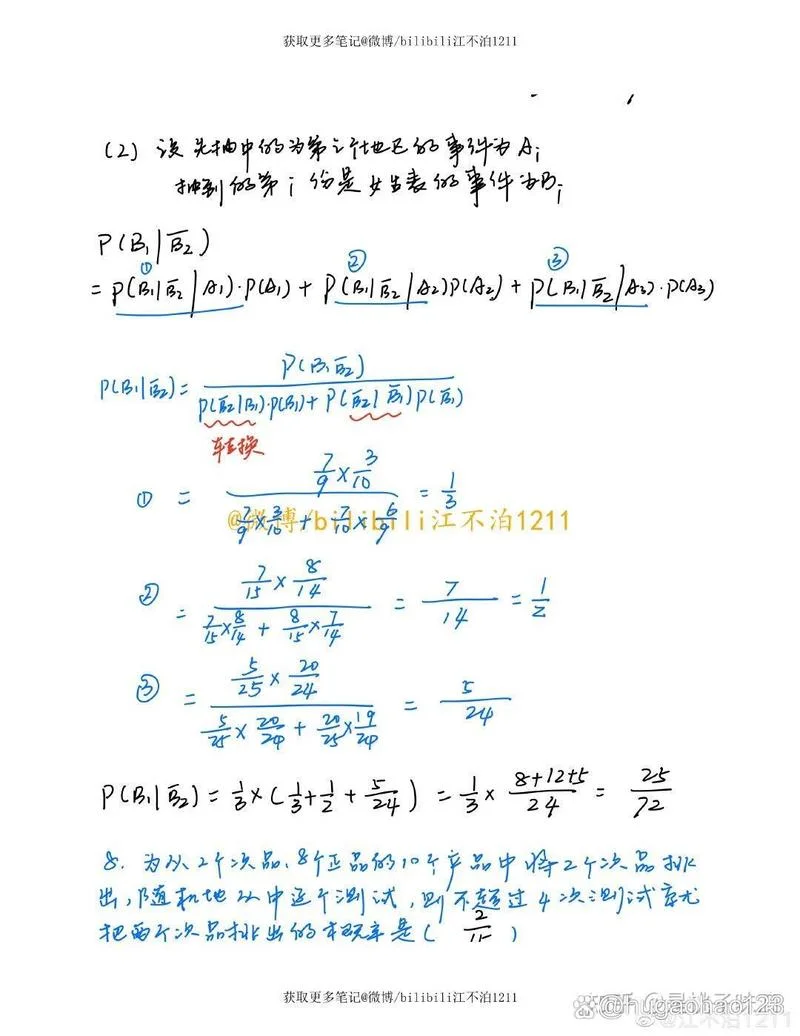 获取更多笔记@微博/bilibili江不泊1211
(2) 设先抽中的为第i个地区的事件为Ai
抽到的第i份是女生表的事件为Bi
P(B₁|B̅₂)
= P(B₁|B̅₂|A₁)·P(A₁) + P(B₁|B̅₂|A₂)P(A₂) + P(B₁|B̅₂|A₃)·P(A₃)
① ② ③
P(B₁|B̅₂) = P(B₁B̅₂) / P(B̅₂|B₁)·P(B₁) + P(B̅₂|B̅₁)P(B̅₁)
转换
① = 7/9 × 3/10 / 7/9 × 3/10 + 7/10 × 6/9 = 1/3
@微博/bilibili江不泊1211
② = 7/15 × 8/14 / 7/15 × 8/14 + 8/15 × 7/14 = 7/14 = 1/2
③ = 5/25 × 20/24 / 5/25 × 20/24 + 20/25 × 19/24 = 5/24
P(B₁|B̅₂) = 1/3 × (1/3 + 1/2 + 5/24) = 1/3 × 8+12+5/24 = 25/72
8. 为从2个次品、8个正品的10个产品中将2个次品挑
出，随机地从中逐个测试，则不超过4次测试就
把两个次品挑出的概率是( 2/15 )
获取更多笔记@微博/bilibili江不泊1211
@hugaohao123
@江不泊1211